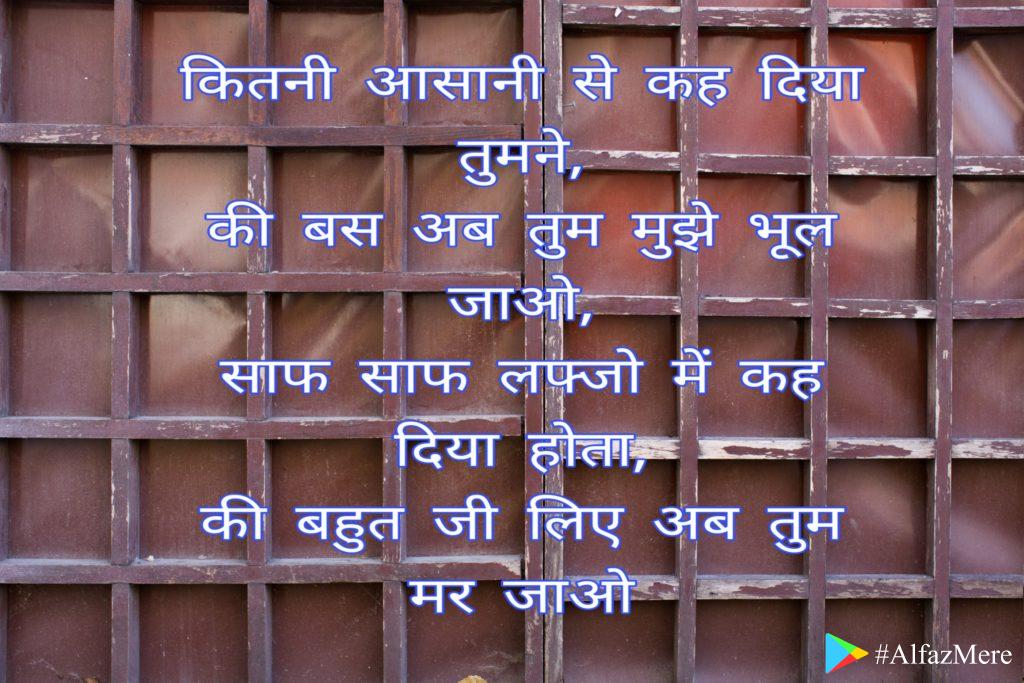 कितनी आसानी से कह दिया
तुमने,
की बस अब तुम मुझे भूल
जाओ,
साफ साफ लफ्जो में कह
दिया होता,
की बहुत जी लिए अब तुम
मर जाओ
#AlfazMere